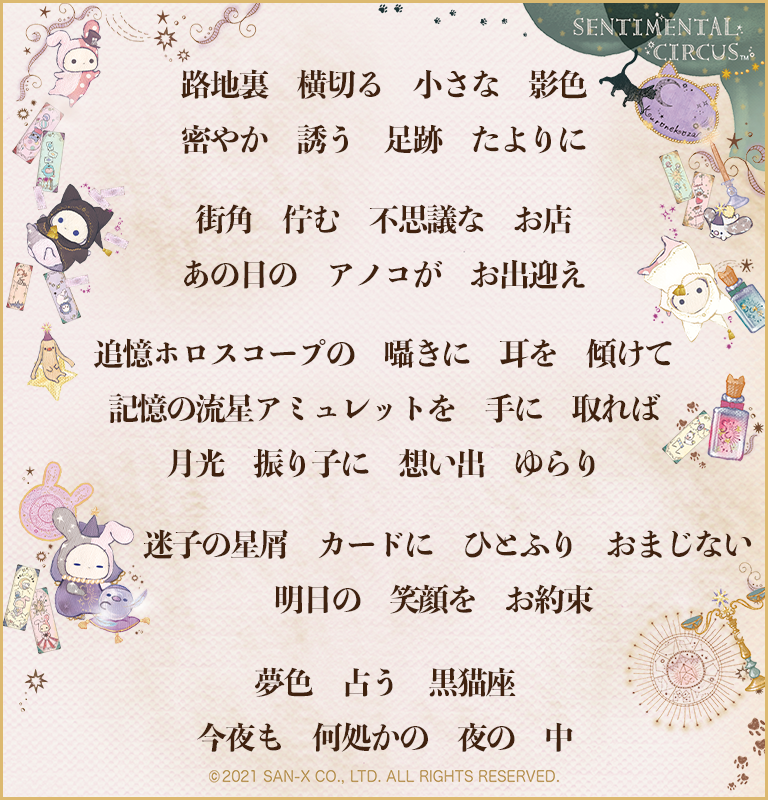 SENTIMENTAL
CIRCUS™
Kuronekoza
路地裏　横切る　小さな　影色
密やか　誘う　足跡　たよりに
街角　佇む　不思議な　お店
あの日の　アノコが　お出迎え
追憶ホロスコープの　囁きに　耳を　傾けて
記憶の流星アミュレットを　手に　取れば
月光　振り子に　想い出　ゆらり
迷子の星屑　カードに　ひとふり　おまじない
明日の　笑顔を　お約束
夢色　占う　黒猫座
今夜も　何処かの　夜の　中
©2021 SAN-X CO., LTD. ALL RIGHTS RESERVED.